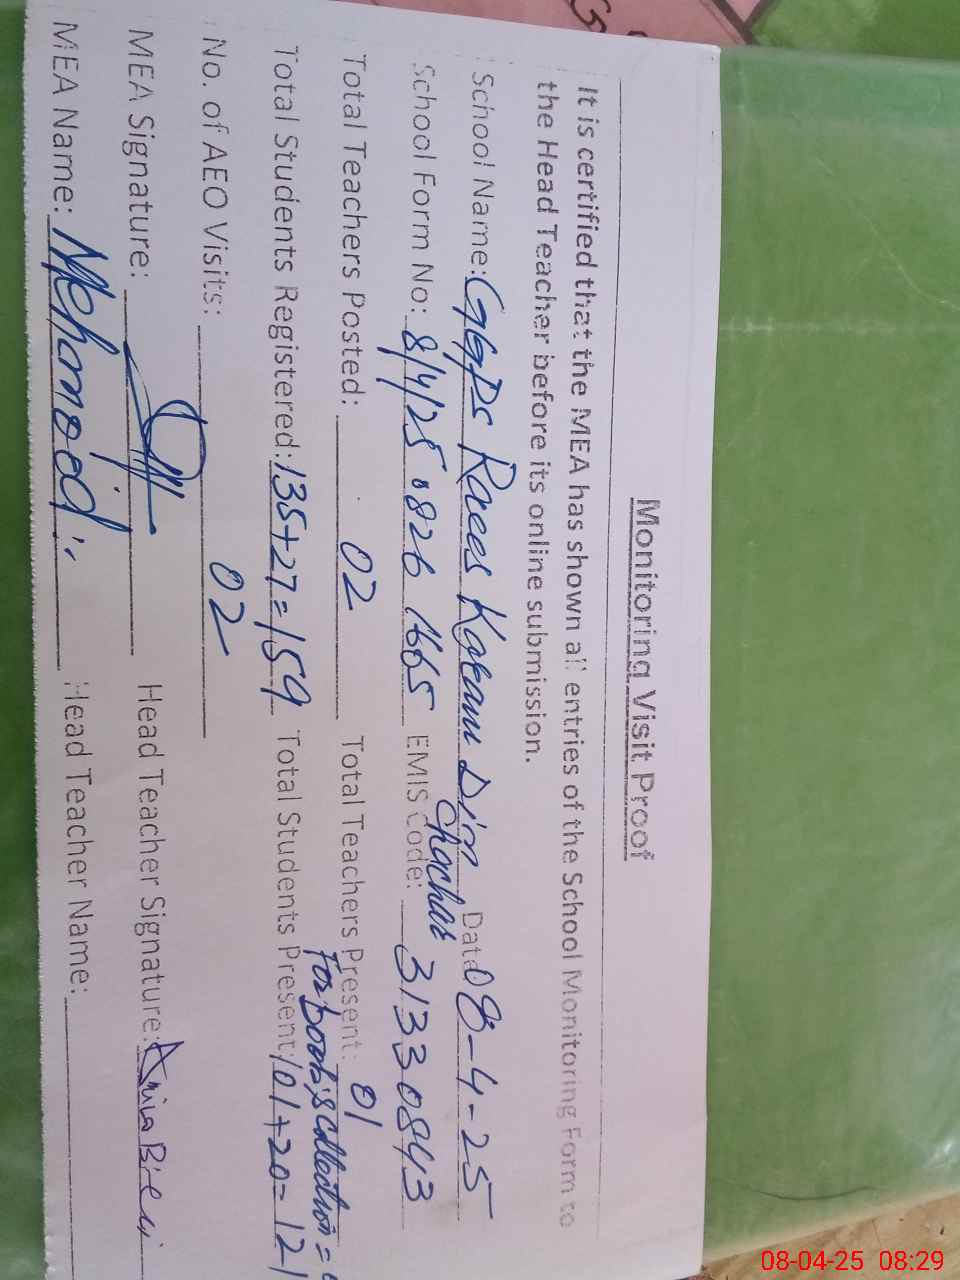 Monitoring Visit Proof
It is certified that the MEA has shown all entries of the School Monitoring Form to
the Head Teacher before its online submission.
School Name: GGPS Raees Kareem Din Chachar Date 08-4-25
School Form No: 8/4/25 0826 1665 EMIS Code: 31330843
Total Teachers Posted: 02 Total Teachers Present: 01
for book's collection =
Total Students Registered: 135+27=159 Total Students Present: 101+20=121
No. of AEO Visits: 02
MEA Signature: Head Teacher Signature: Bibi
MEA Name: Mehmood Head Teacher Name:
08-04-25 08:29